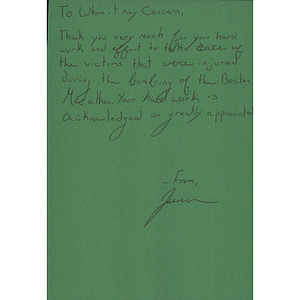 To Whom it may Concern,
Thank you very much for your hard
work and effort to take care of
the victims that were injured
during the bombing of the Boston
Marathon. Your hard work is
acknowledged an greatly appreciated
- From,